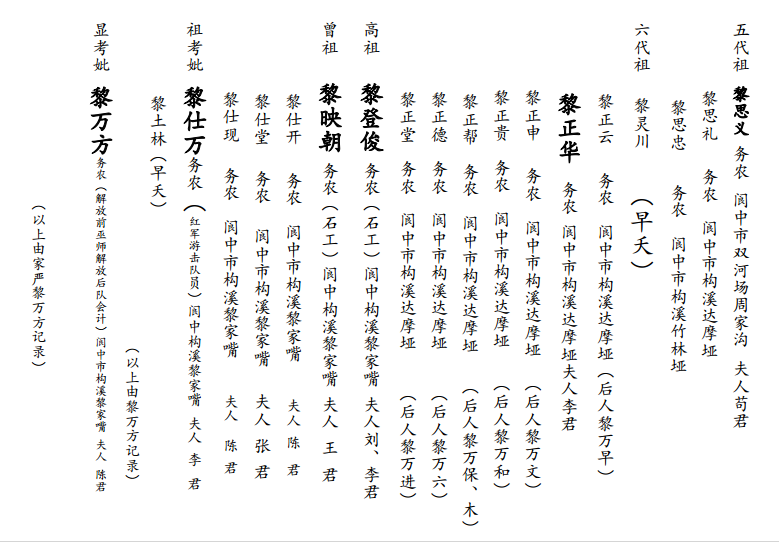 五代祖 黎思义 务农 阆中市双河场周家沟 夫人苟君
黎思礼 务农 阆中市构溪达摩垭
黎思忠 务农 阆中市构溪竹林垭
六代祖 黎灵川 （早夭）
黎正云 务农 阆中市构溪达摩垭（后人黎万早）
黎正华 务农 阆中市构溪达摩垭夫人李君
黎正申 务农 阆中市构溪达摩垭 （后人黎万文）
黎正贵 务农 阆中市构溪达摩垭 （后人黎万和）
黎正帮 务农 阆中市构溪达摩垭 （后人黎万保、木）
黎正德 务农 阆中市构溪达摩垭 （后人黎万六）
黎正堂 务农 阆中市构溪达摩垭 （后人黎万进）
高祖 黎登俊 务农（石工）阆中构溪黎家嘴 夫人刘、李君
曾祖 黎映朝 务农（石工）阆中构溪黎家嘴 夫人 王 君
黎仕开 务农 阆中市构溪黎家嘴 夫人 陈 君
黎仕堂 务农 阆中市构溪黎家嘴 夫人 张 君
黎仕现 务农 阆中市构溪黎家嘴 夫人 陈 君
祖考妣 黎仕万 务农（红军游击队员）阆中构溪黎家嘴 夫人 李 君
黎土林（早夭）
（以上由黎万方记录）
显考妣 黎万方 务农（解放前巫师解放后队会计）阆中市构溪黎家嘴 夫人 陈君
（以上由家严黎万方记录）